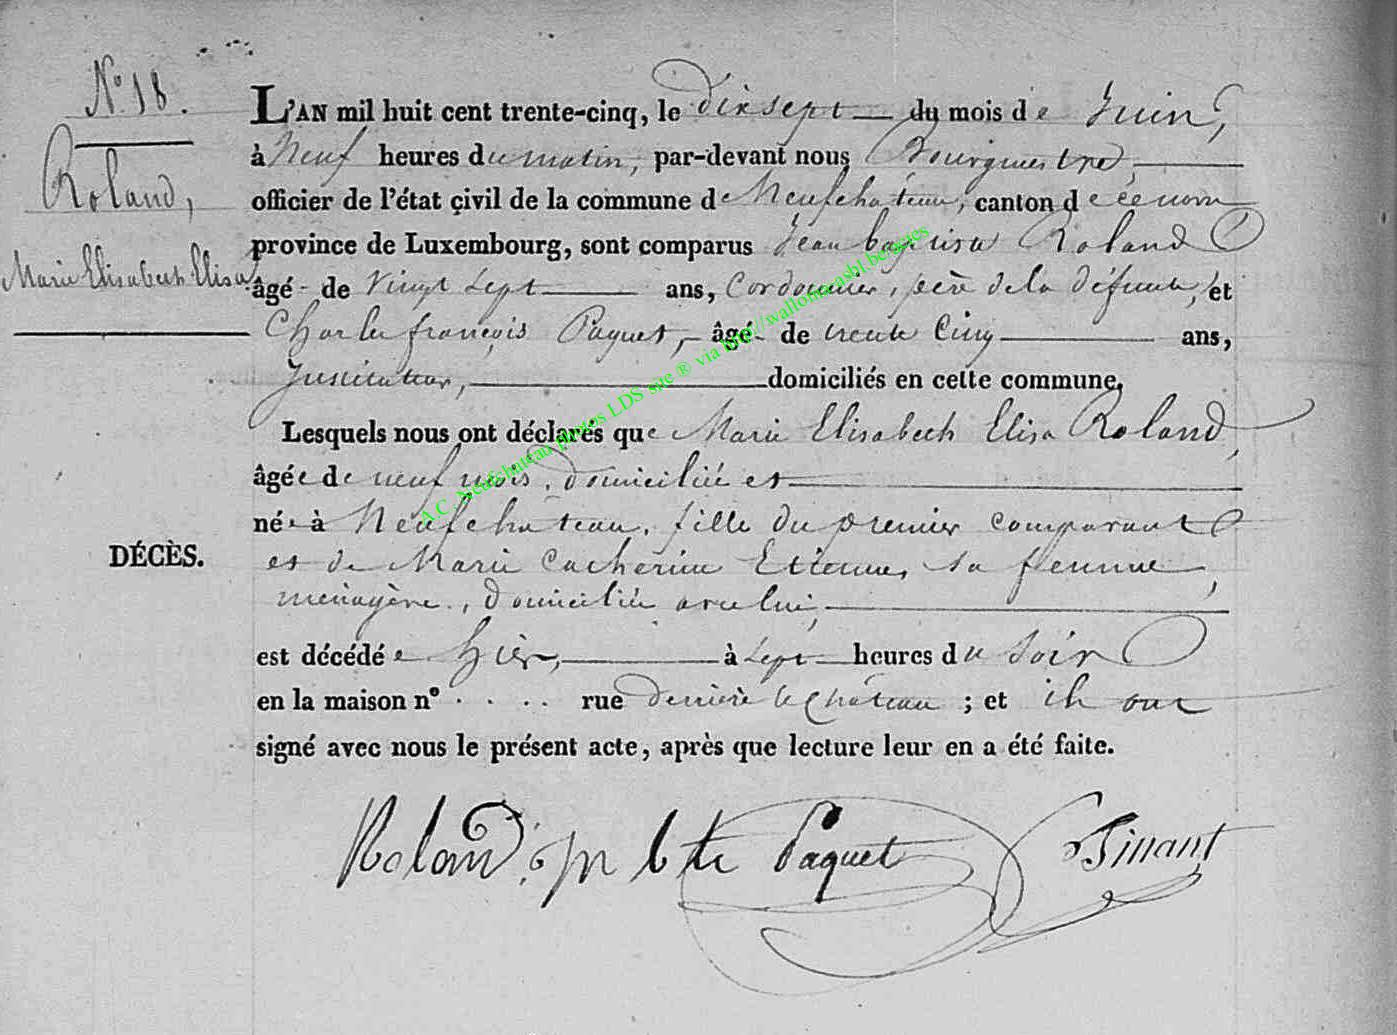 N.° 18.
Roland,
Marie Elisabeth Elisa
L'AN mil huit cent trente-cinq, le dix sept du mois de Juin,
à Neuf heures du matin, par-devant nous Bourgmestre,
officier de l'état çivil de la commune de Neufchateau, canton de ce nom
province de Luxembourg, sont comparus Jean baptiste Roland
âgé de Vingt Sept ans, Cordonnier, père de la défunte, et
Charles françois Paquet, âgé de trente Cinq ans,
Instituteur, domiciliés en cette commune.
Lesquels nous ont déclarés que Marie Elisabeth Elisa Roland,
âgée de neuf mois, domiciliée et
née à Neufchateau, fille du premier comparant
DÉCÈS.
et de Marie Catherine Etienne, sa femme,
ménagère, domiciliée avec lui,
est décédée hier, à Sept heures du Soir
en la maison n° . . . . rue derrière le Château ; et ils ont
signé avec nous le présent acte, après que lecture leur en a été faite.
Roland j bte Paquet
A.C. Neufchateau photos LDS site ® via http://wallonicasbl.bergetes